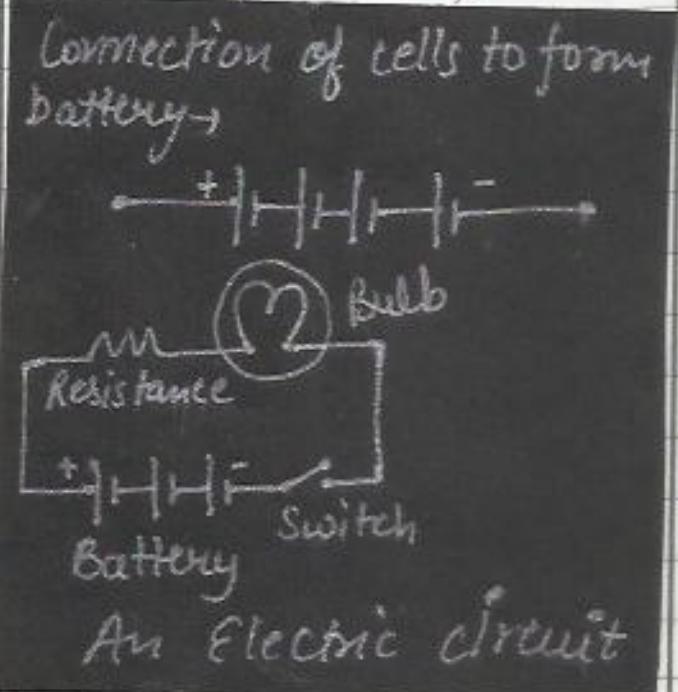 Connection of cells to form
battery→
+ -
Bulb
Resistance
+ -
Switch
Battery
An Electric circuit